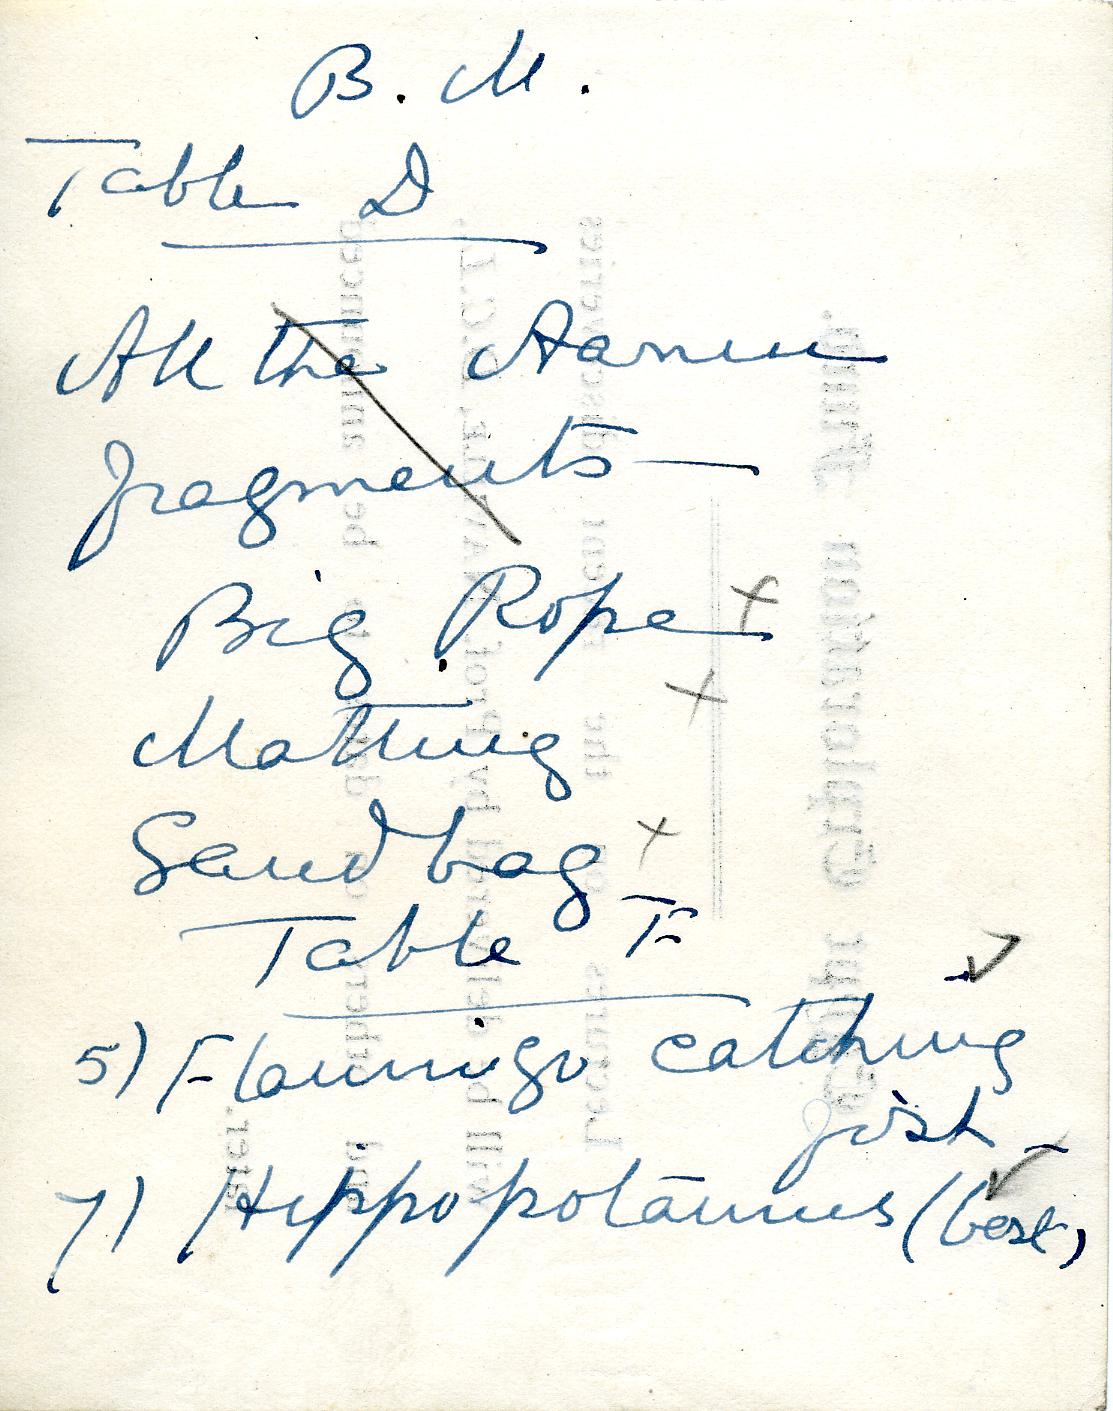 B. M.
Table D
All the
fragments —
Big Rope x
Matting x
Sandbag x
Table F
5) Flamingo catching ✓
fish –
7) Hippopotamus (best) ✓